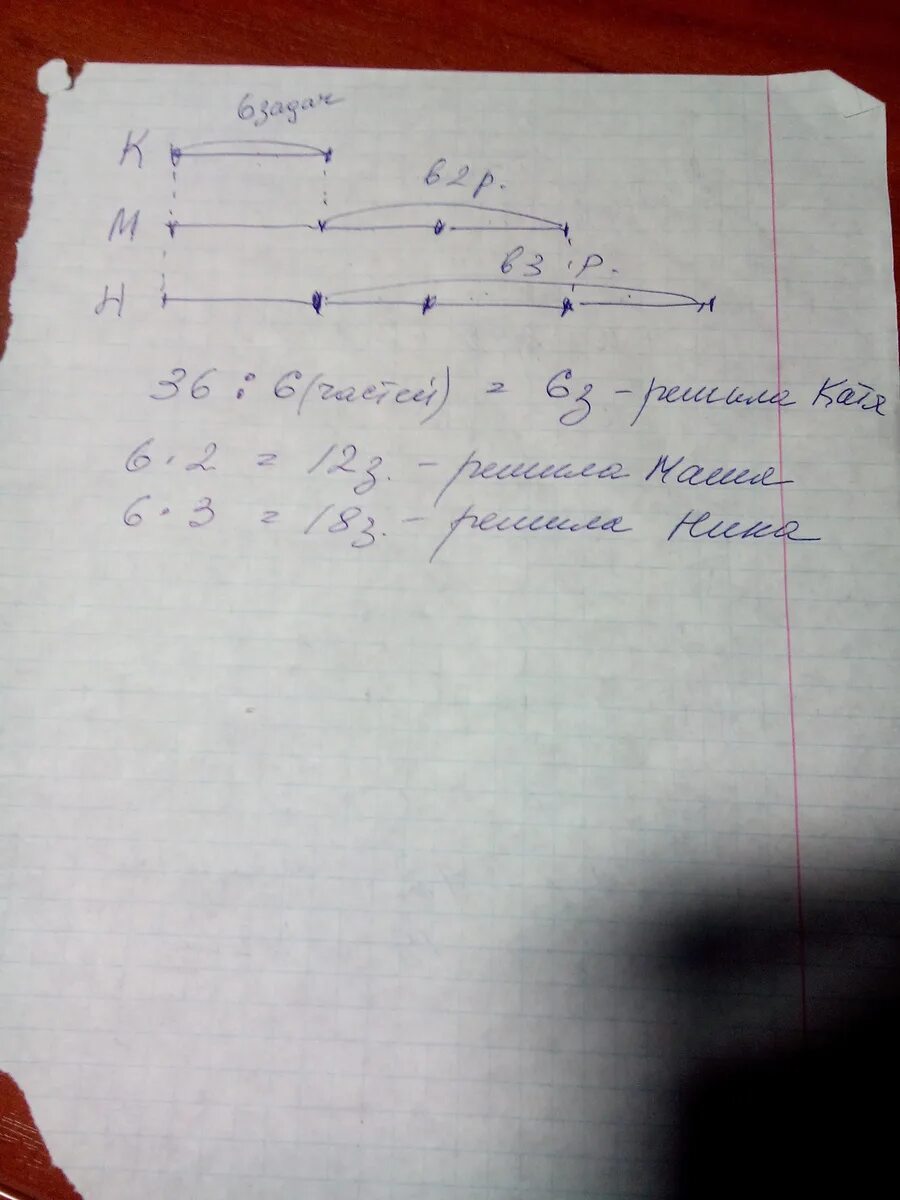 6 задач
К
в 2 р.
М
в 3 р.
Н
36 : 6 (частей) = 6 з - решила Катя
6 · 2 = 12 з. - решила Маша
6 · 3 = 18 з. - решила Нина